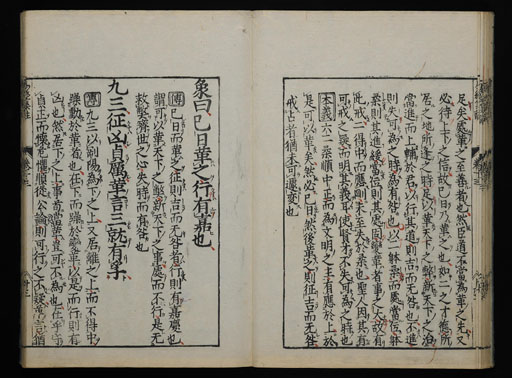 足矣處革之至善者也然臣道不當為革之先又
必待上下之信故已日乃革之也如二之才德所
居之地所逢之時足以革天下之弊新天下之治
當進而上輔於君以行其道則吉而无咎也不進
則失可為之時為有咎也以二體柔而處當位體
柔則其進緩當位則其處固變革者事之大故有
此戒二得中而應剛未至失於柔也聖人因其有
可戒之疑而明其義耳使賢才不失可為之時也
本義六二柔順中正而為文明之主有應於上於
是可以革矣然必已日然後革之則征吉而无咎
戒占者猶未可遽變也
象曰已日革之行有嘉也
傳已日而革之征則吉而无咎者行則有嘉慶也
謂可以革天下之弊新天下之事處而不行是无
救弊濟世之心失時而有咎也
九三征凶貞厲革言三就有孚
傳九三以剛陽為下之上又居離之上而不得中
躁動於革者也在下而躁於變革以是而行則有
凶也然居下之上事苟當革豈可不為也在乎守
貞正而懷危懼順從公論則可行之不疑革言猶